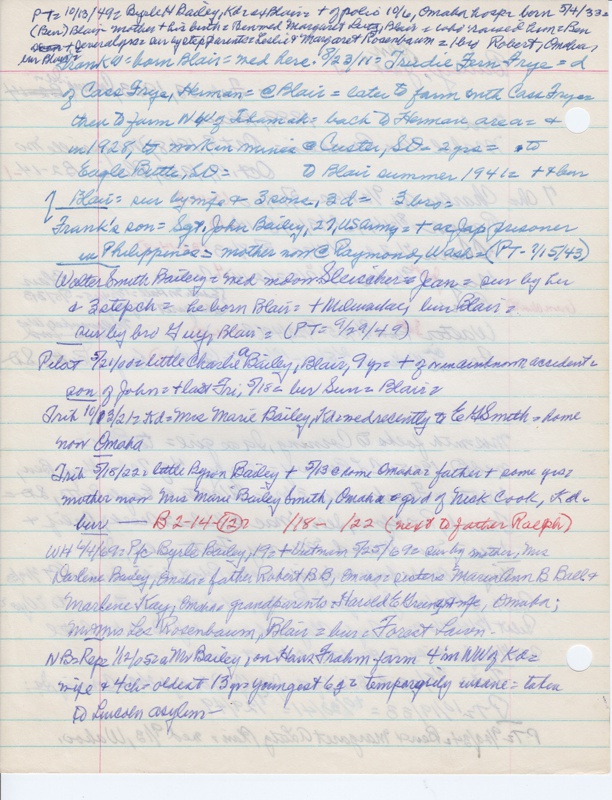 PT= 10/13/49= Byrle H Bailey, Kd area Blair= + of polio 10/6, Omaha hosp= born 5/4/33=
(Ben) Blair= mother + his birth= Ben med Margaret Blair= who raised him= Ben
+ several yrs= sur by step parents= Leslie & Margaret Rosenbaum= bro Robert, Omaha,
bur Blair=
Frank W= born Blair= med here: 8/23/11= Trudie Fern Frye= d
of Cass Frye, Herman= @ Blair= later to farm with Cass Frye=
then to farm NW of Tekamah= back to Herman area= +
in 1928, to work in mines @ Custer, SD= 2 yrs= to
Eagle Butte, SD= to Blair summer 1941= + & bur
Blair= sur by wife & 3 sons, 3 d= 3 bro=
Frank's son= Sgt. John Bailey, 27, US Army= + as Jap prisoner
in Philippines= mother now @ Raymond, Wash= (PT- 7/15/43)
Walter Smith Bailey= med mdom Sleischer= Jean= sur by her
& 3 stepch= he born Blair= + Milwaukee, bur Blair=
sur by bro Guy, Blair= (PT= 9/29/49)
Pilot 5/21/00= little Charlie Bailey, Blair, 9 yr= + of runaway accident=
son of John= + last Fri, 5/18= bur Sun= Blair=
Trib 10/13/21= Kd= Mrs Marie Bailey, Kd= med recently to E H Smith= home
now Omaha
Trib 5/15/22= little Byron Bailey + 5/13 @ home Omaha= father + some yrs=
mother now Mrs Marie Bailey Smith, Omaha= grd of Nick Cook, Kd-
bur — B 2-14-12= 1/18- 1/22 (next to father Ralph)
WH 4/4/69= Pfc Byrle Bailey, 19= + Vietnam 3/25/69= sur by mother, Mrs
Darlene Bailey, Omaha= father Robert B B, Omaha= sisters Mariann B Bell &
Marlene Kay, Omaha= grandparents= Harold E & wife, Omaha;
Mr Mrs Les Rosenbaum, Blair= bur= Forest Lawn-
NB= Rep= 1/12/05= a Mr Bailey, on Hans Frahm farm 4 mi NW of Kd=
wife & 4 ch= oldest 13 yr= youngest 6 = temporarily insane= taken
to Lincoln asylum—